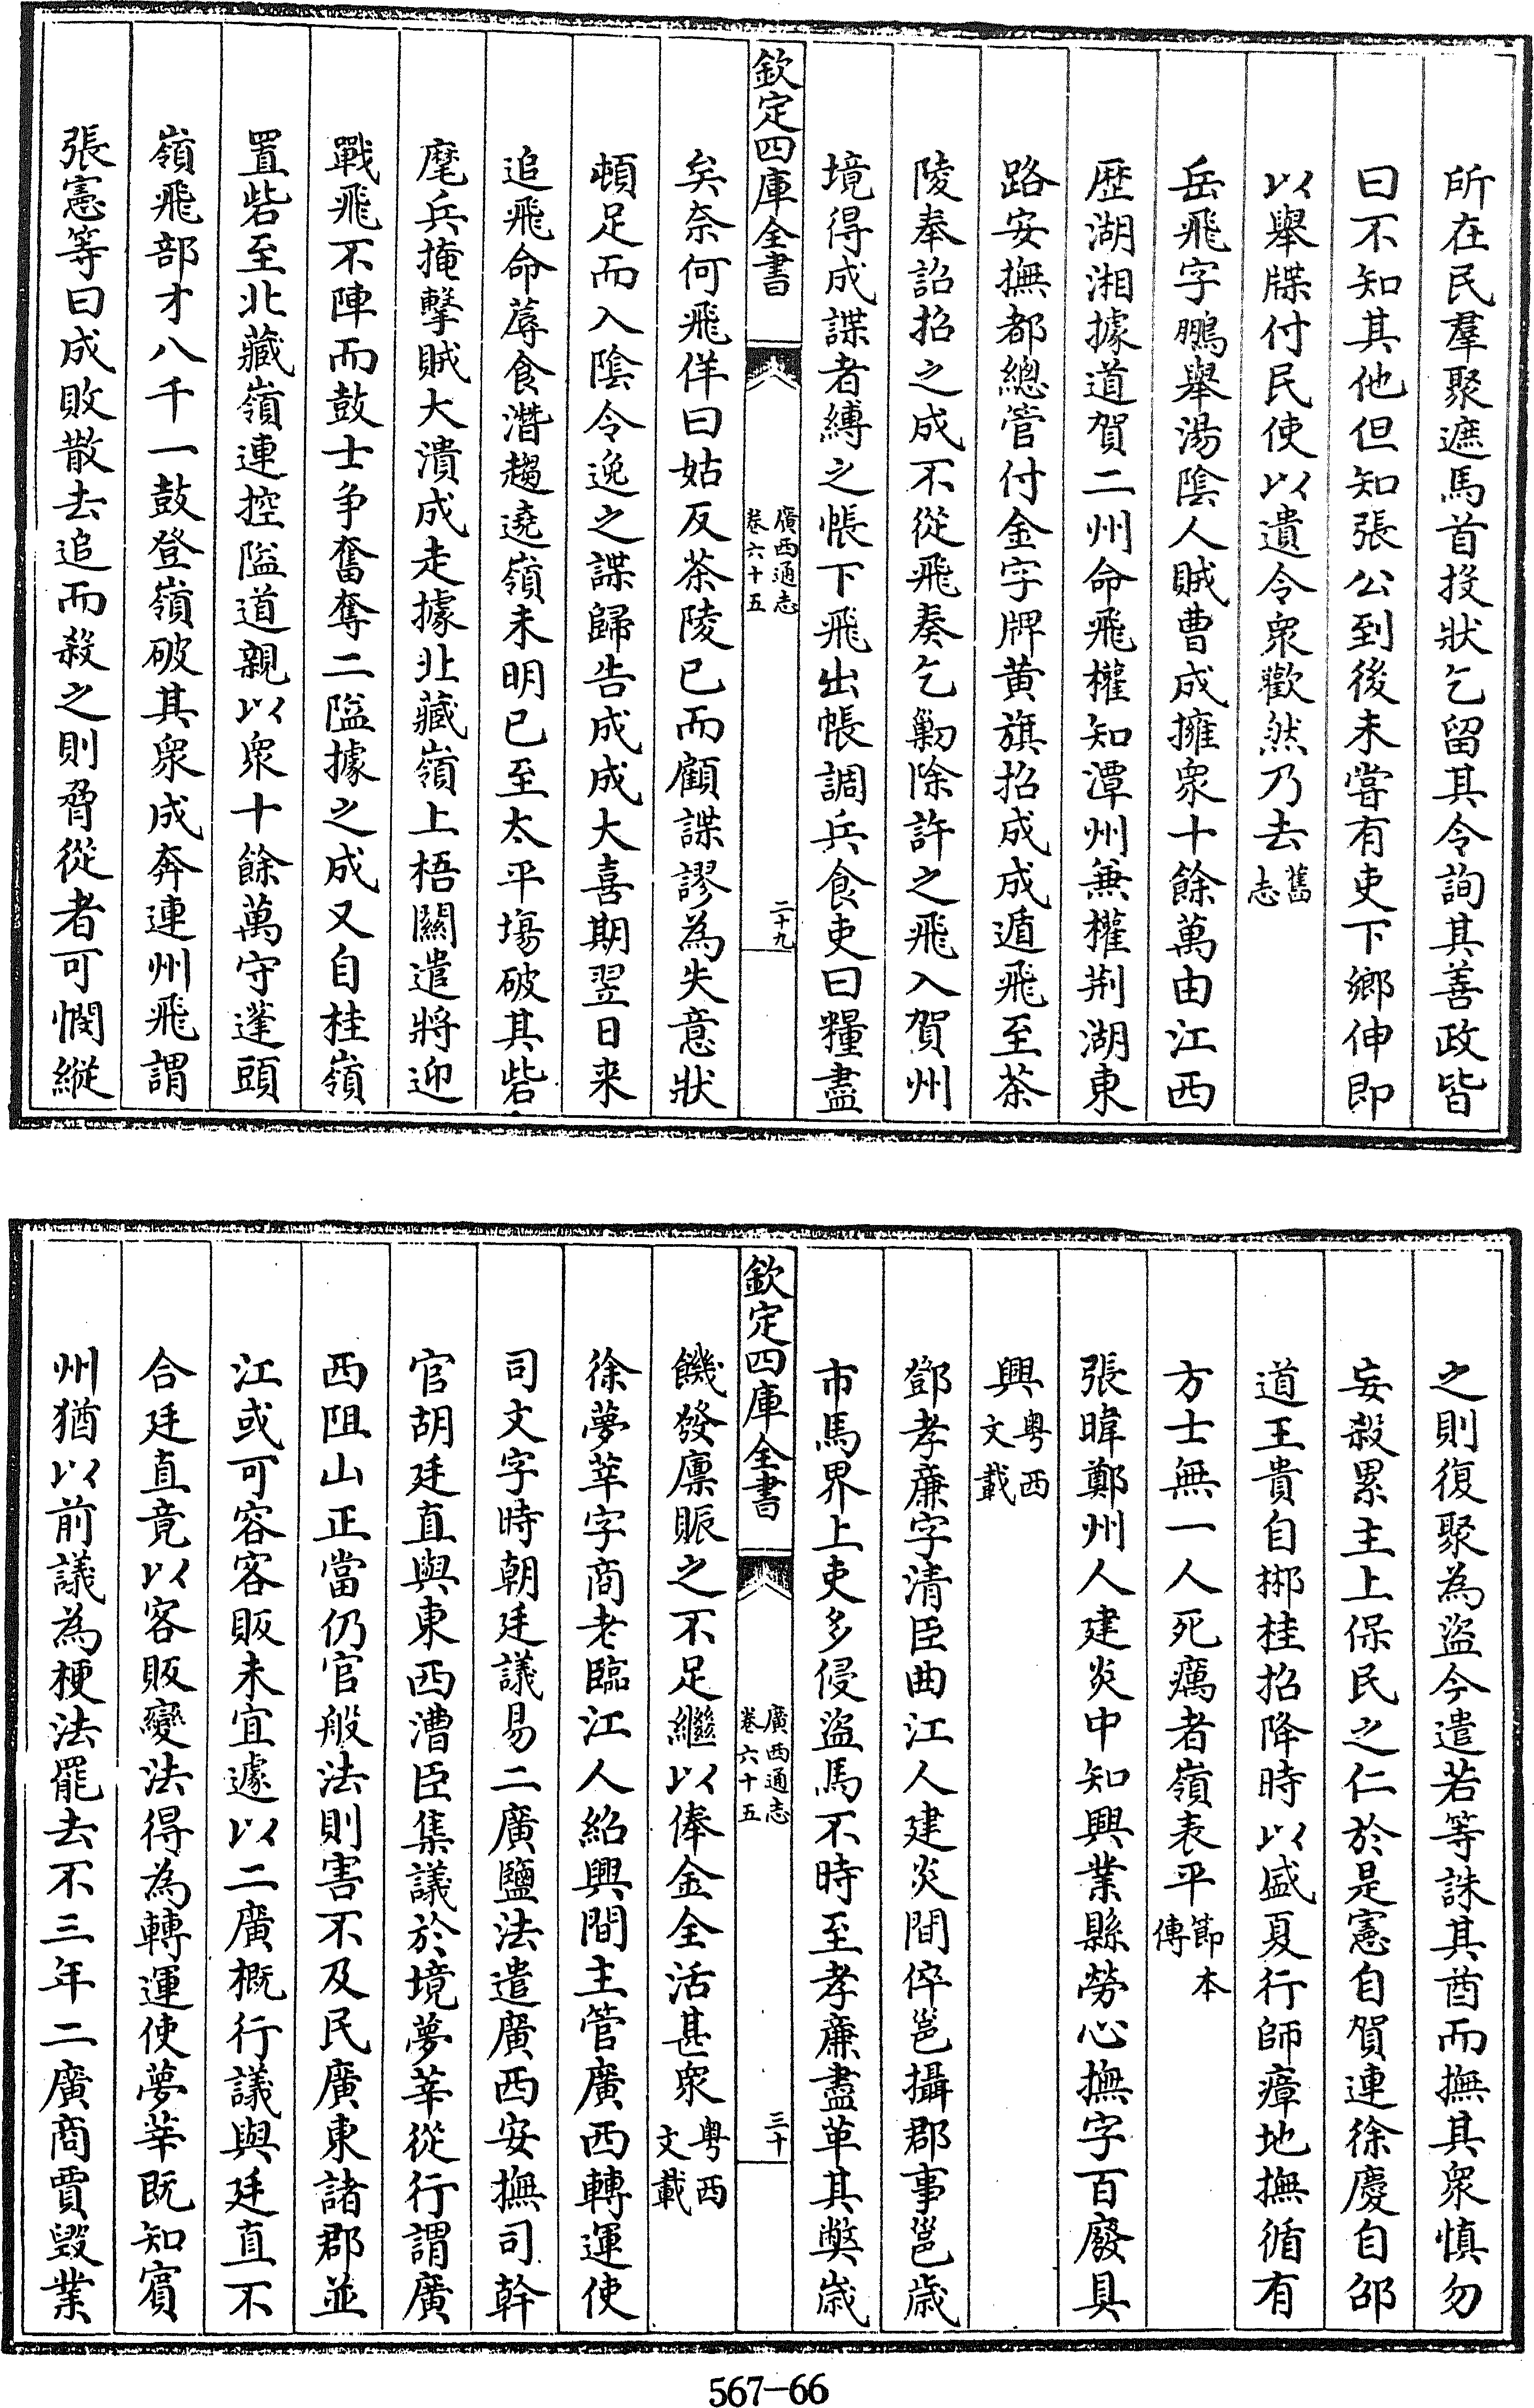 所在民羣聚遮馬首投狀乞留其令詢其善政皆
曰不知其他但知張公到後未嘗有吏下鄉伸即
以舉牒付民使以遺令衆歡然乃去舊志
岳飛字鵬舉湯陰人賊曹成擁衆十餘萬由江西
歴湖湘據道賀二州命飛權知潭州兼權荆湖東
路安撫都總管付金字牌黄旗招成成遁飛至茶
陵奉詔招之成不從飛奏乞勦除許之飛入賀州
境得成諜者縛之帳下飛出帳調兵食吏曰糧盡
欽定四庫全書
廣西通志
卷六十五
二十九
矣奈何飛佯曰姑反茶陵已而顧諜謬為失意狀
頓足而入陰令逸之諜歸告成成大喜期翌日来
追飛命蓐食潛趨遶嶺未明已至太平塲破其砦
麾兵掩擊賊大潰成走據北藏嶺上梧關遣將迎
戰飛不陣而鼓士争奮奪二隘據之成又自桂嶺
置砦至北藏嶺連控隘道親以衆十餘萬守蓬頭
嶺飛部才八千一鼓登嶺破其衆成奔連州飛謂
張憲等曰成敗散去追而殺之則脅從者可憫縱
之則復聚為盜今遣若等誅其酋而撫其衆慎勿
妄殺累主上保民之仁於是憲自賀連徐慶自邵
道王貴自郴桂招降時以盛夏行師瘴地撫循有
方士無一人死癘者嶺表平節本傳
張暐鄭州人建炎中知興業縣勞心撫字百廢具
興粤西文載
鄧孝廉字清臣曲江人建炎間倅邕攝郡事邕歲
市馬界上吏多侵盜馬不時至孝廉盡革其獘歲
欽定四庫全書
廣西通志
卷六十五
三十
饑發廪賑之不足繼以俸金全活甚衆粤西文載
徐夢莘字商老臨江人紹興間主管廣西轉運使
司文字時朝廷議易二廣鹽法遣廣西安撫司幹
官胡廷直與東西漕臣集議於境夢莘從行謂廣
西阻山正當仍官般法則害不及民廣東諸郡並
江或可容客販未宜遽以二廣概行議與廷直不
合廷直竟以客販變法得為轉運使夢莘既知賓
州猶以前議為梗法罷去不三年二廣商賈毁業
567-66